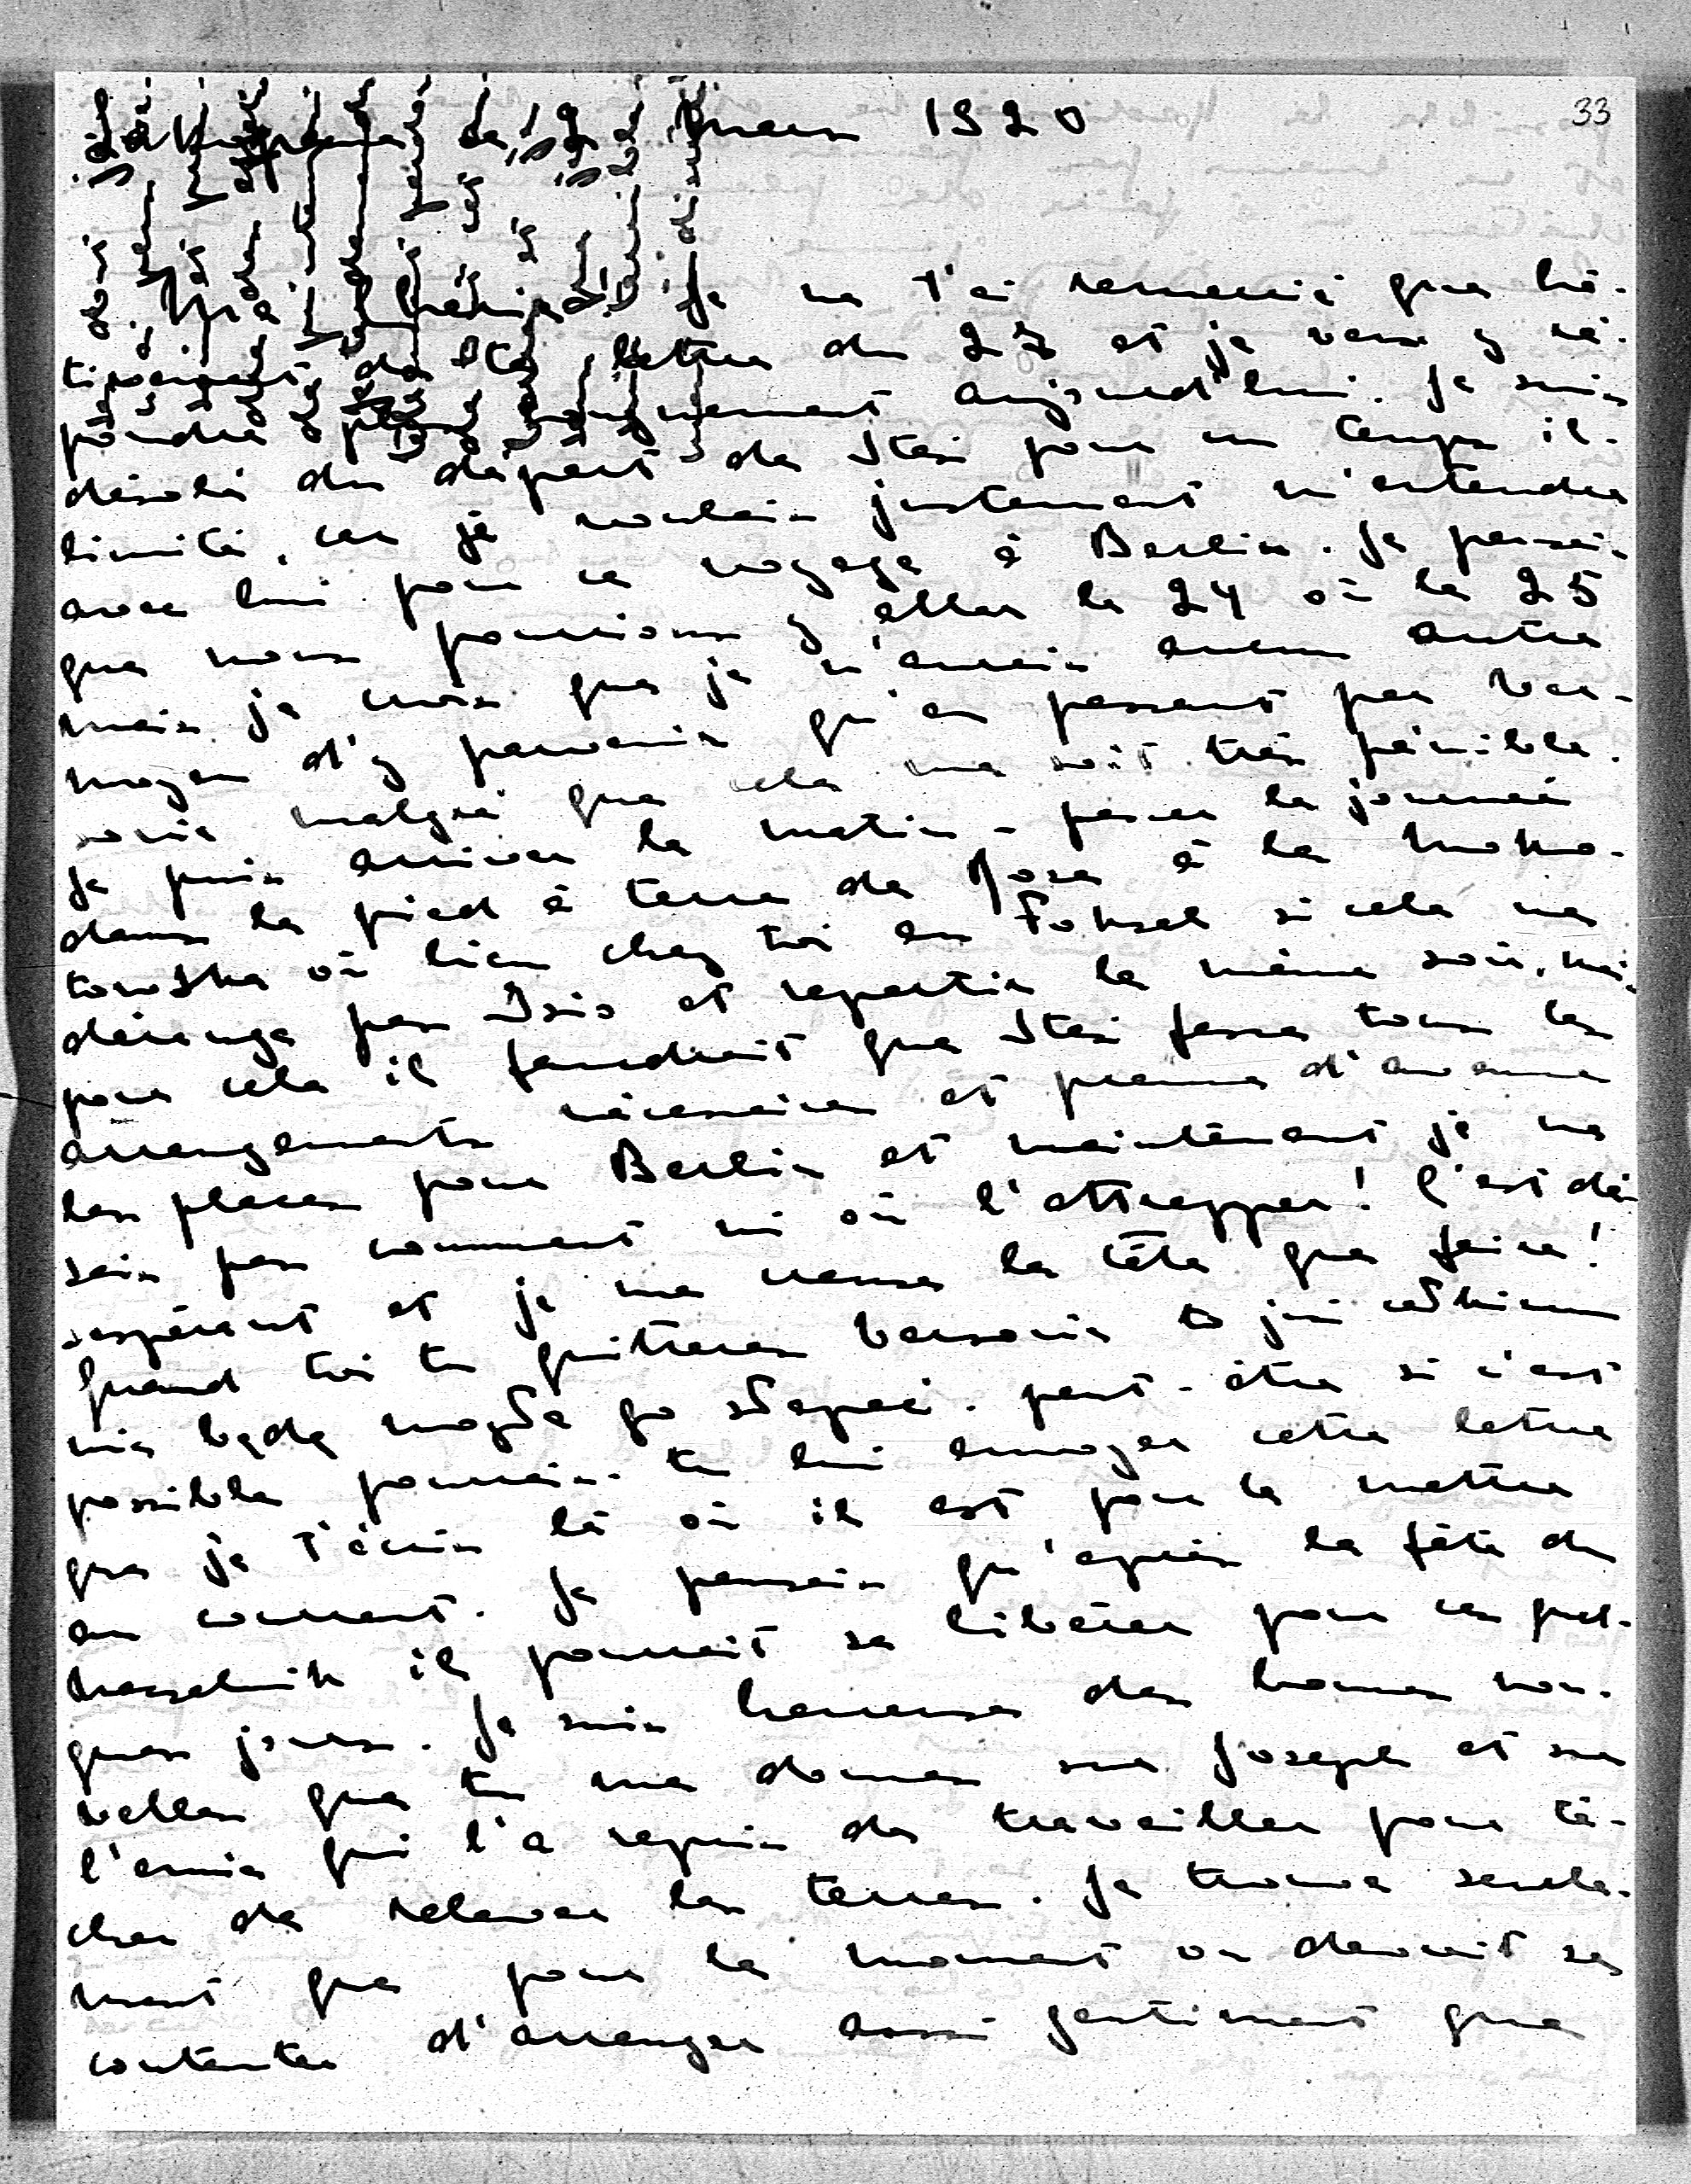 33
Zakopane le 2 mars 1920
Ma Chérie! Je ne t'ai remercié que hâ-
tivement de ta lettre du 27 et je veux y ré-
pondre plus longuement aujourd'hui. Je suis
désolé du départ de Stas pour un temps il-
limité, car je voulais justement m'entendre
avec lui pour ce voyage à Berlin. Je pensais
que nous pourrions y aller le 24 ou le 25
mais je crois que je n'aurais aucun autre
moyen d'y parvenir qu'en passant par Var-
sovie malgré que cela me soit très pénible.
Je puis arriver le matin - passer la journée
dans le pied à terre de Rosa à la Moko-
towska ou bien chez toi au Foksal si cela ne
dérange pas Isio et repartir le même soir, mais
pour cela il faudrait que Stas fasse tous les
arrangements nécessaires et prenne d'avance
les places pour Berlin et maintenant je ne
sais pas comment ni où l'attrapper! C'est dé-
sespérant et je me creuse la tête que faire!
Quand toi tu quitteras Varsovie to już całkiem
nie będę mogła go złapać. peut-être si c'est
possible pourrais-tu lui envoyer cette lettre
que je t'écris là où il est pour le mettre
au courant. Je pensais qu'après la fête du
naczelnik il pourrait se libérer pour ces quel-
ques jours. Je suis heureuse des bonnes nou-
velles que tu me donnes sur Joseph et sur
l'envie qui l'a repris de travailler pour tâ-
cher de relever les terres. Je trouve seule-
ment que pour le moment on devrait se
contenter d'arranger aussi gentiment que